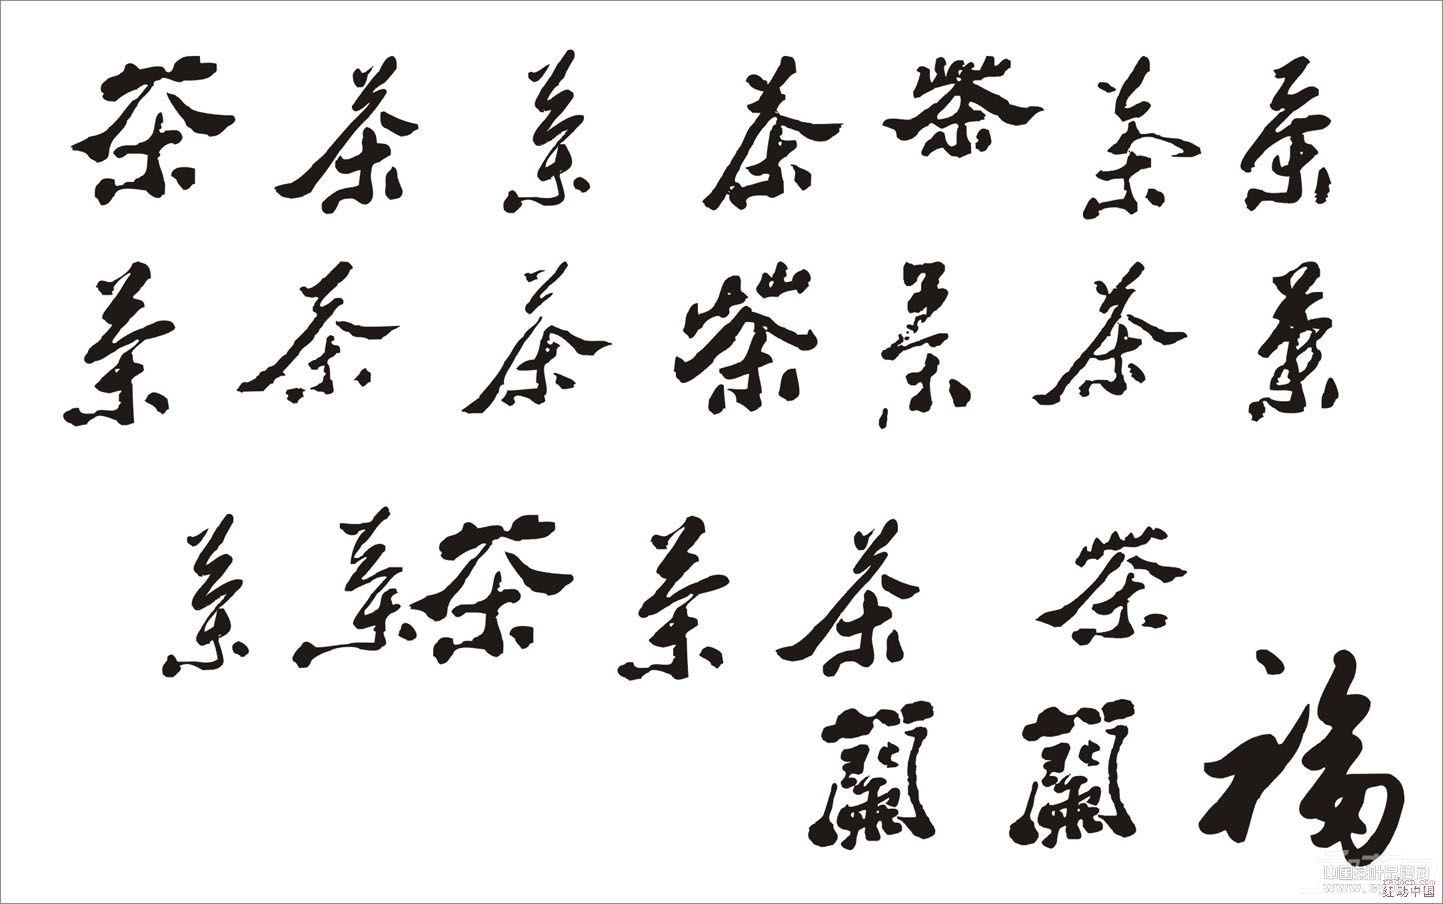 茶 茶 茶 茶 茶 茶 茶
茶 茶 茶 茶 茶 茶 茶
茶 茶 茶 茶 茶 茶
蘭 蘭 福
中国茶叶品牌网
redocn.com
红动中国